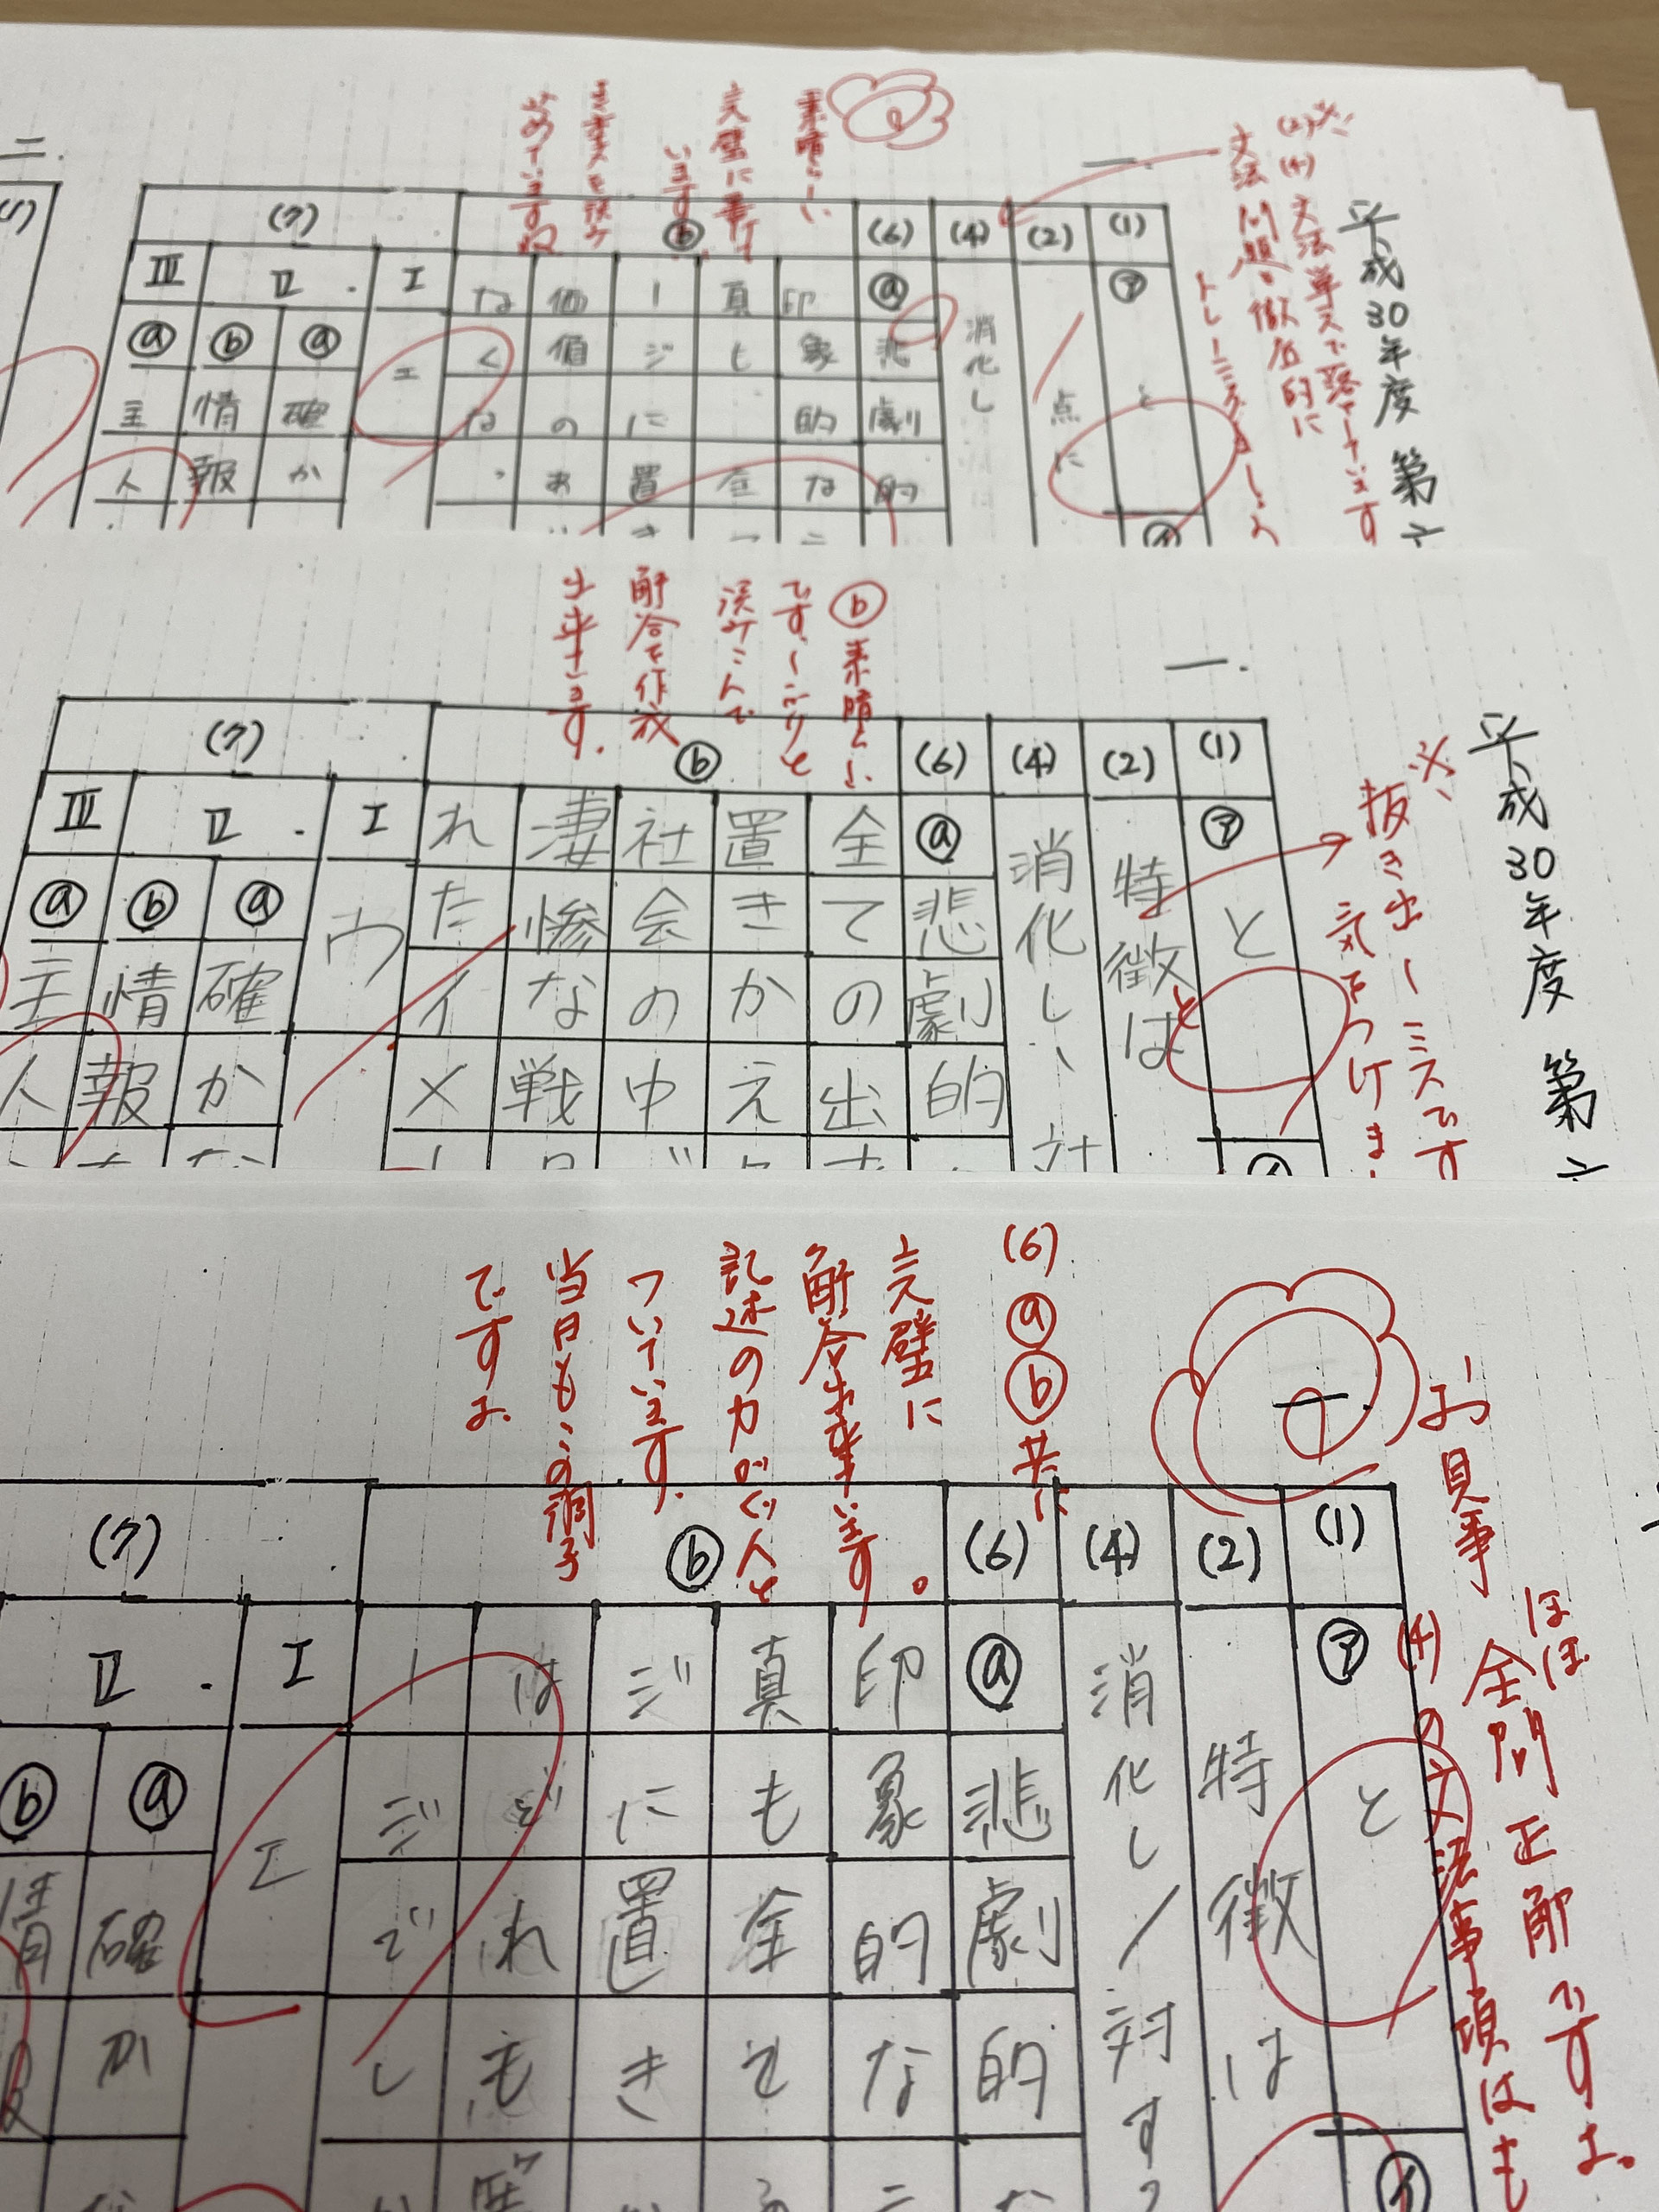 ※
(2)(4)文法単元で落としています
文法問題を徹底的に
トレーニングをしましょう
平成30年度 第六
一
(1)
㋐
と
(2)
点に
(4)
消化し
(6)
ⓐ
悲劇的
ⓑ
印象的な
真も全
ージに置き
価値のお
なくな、
素晴らしい
完璧に書けて
います
(7)
Ⅰ
エ
Ⅱ
ⓐ
確か
ⓑ
情報
Ⅲ
ⓐ
主人
二.
(1)
平成30年度 第六
※
抜き出しミスです
気をつけま
一.
(1)
㋐
と
(2)
特徴は
と
(4)
消化し、対
(6)
ⓐ
悲劇的
ⓑ
全ての出
置きかえ
社会の中
凄惨な戦
れたイメ
ⓑ素晴らしい
です。しっかりと
読みこんで
解答を作成
出来ています。
(7)
Ⅰ
ウ
Ⅱ
ⓐ
確かな
ⓑ
情報
Ⅲ
ⓐ
主人
お見事
ほぼ
全問正解ですよ。
(4)の文法事項はも
一
(6)ⓐⓑ共に
完璧に
解答出来ています。
記述の力がぐんと
ついています。
当日もこの調子
ですよ。
(1)
㋐
と
㋑
(2)
特徴は
(4)
消化し/対する
(6)
ⓐ
悲劇的
ⓑ
印象的な
真も全て
ジに置き
はどれも
ージでし
(7)
Ⅰ
エ
Ⅱ
ⓐ
確かな
ⓑ
情報